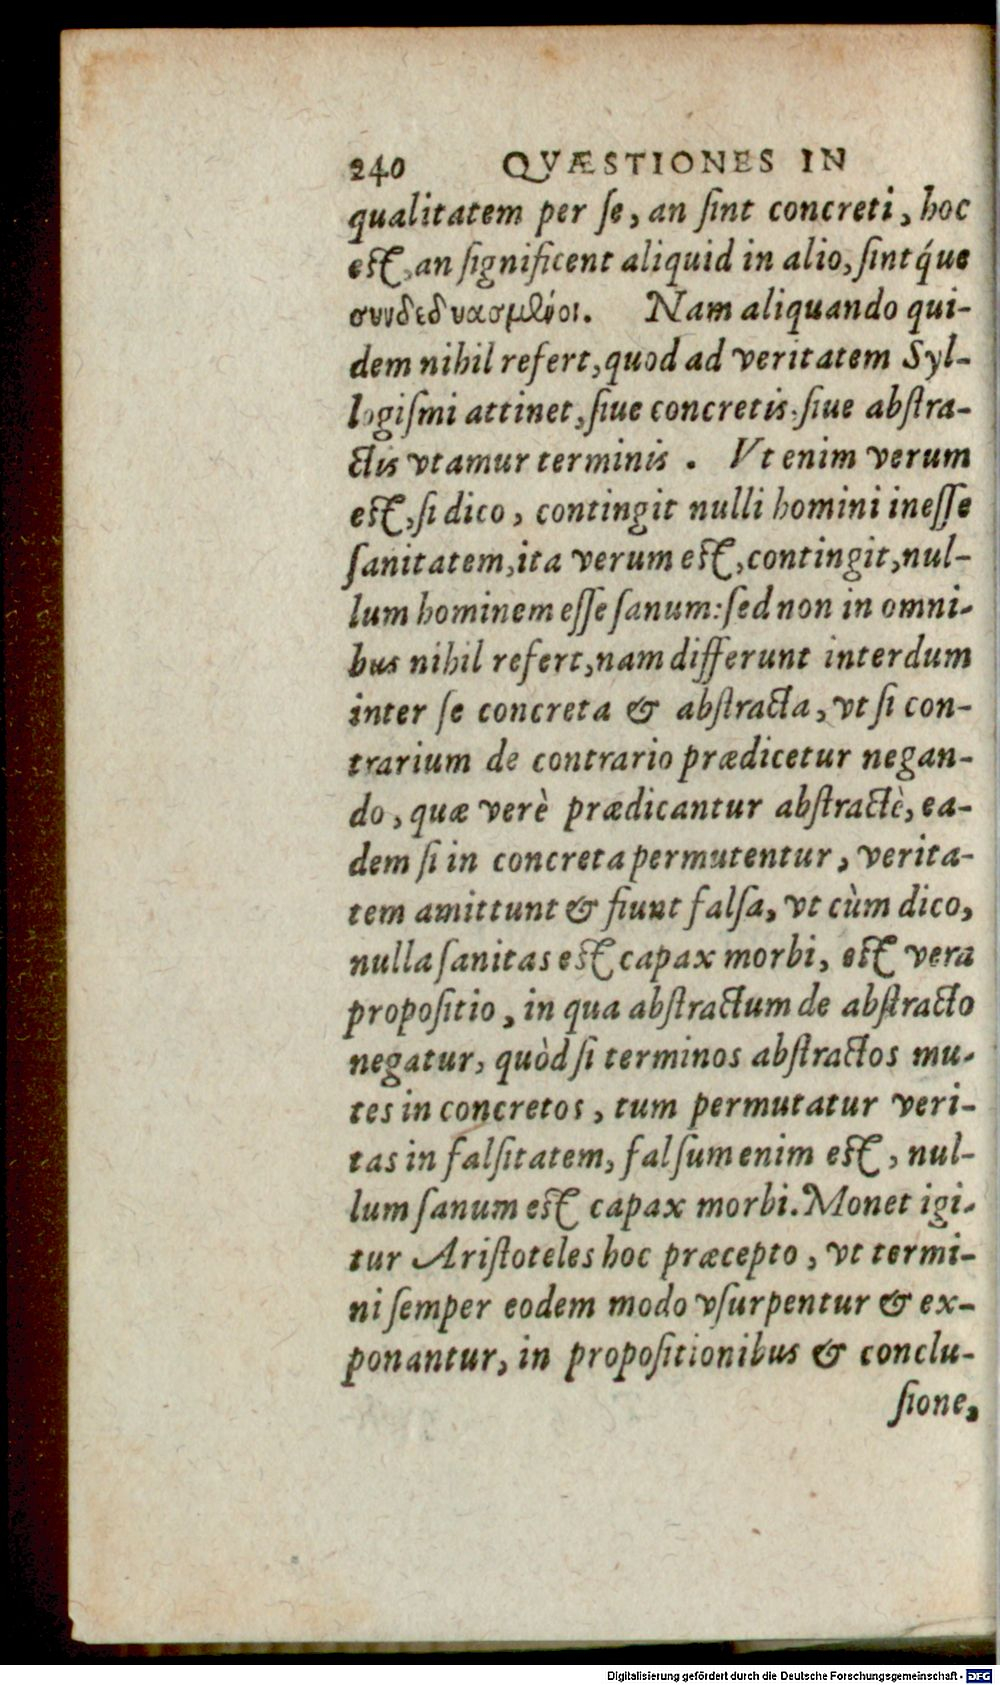 240 QVÆSTIONES IN
qualitatem per ſe, an ſint concreti, hoc
eſt, an ſignificent aliquid in alio, ſintq́ue
συνδεδυασμένοι. Nam aliquando qui-
dem nihil refert, quod ad veritatem Syl-
logiſmi attinet, ſiue concretis, ſiue abſtra-
ctis vtamur terminis. Vt enim verum
eſt, ſi dico, contingit nulli homini ineſſe
ſanitatem, ita verum eſt, contingit, nul-
lum hominem eſſe ſanum: ſed non in omni-
bus nihil refert, nam differunt interdum
inter ſe concreta & abſtracta, vt ſi con-
trarium de contrario prædicetur negan-
do, quæ verè prædicantur abſtractè, ea-
dem ſi in concreta permutentur, verita-
tem amittunt & fiunt falſa, vt cùm dico,
nulla ſanitas eſt capax morbi, eſt vera
propoſitio, in qua abſtractum de abſtracto
negatur, quòd ſi terminos abſtractos mu-
tes in concretos, tum permutatur veri-
tas in falſitatem, falſum enim eſt, nul-
lum ſanum eſt capax morbi. Monet igi-
tur Ariſtoteles hoc præcepto, vt termi-
ni ſemper eodem modo vſurpentur & ex-
ponantur, in propoſitionibus & conclu-
ſione,
Digitalisierung gefördert durch die Deutsche Forschungsgemeinschaft - DFG